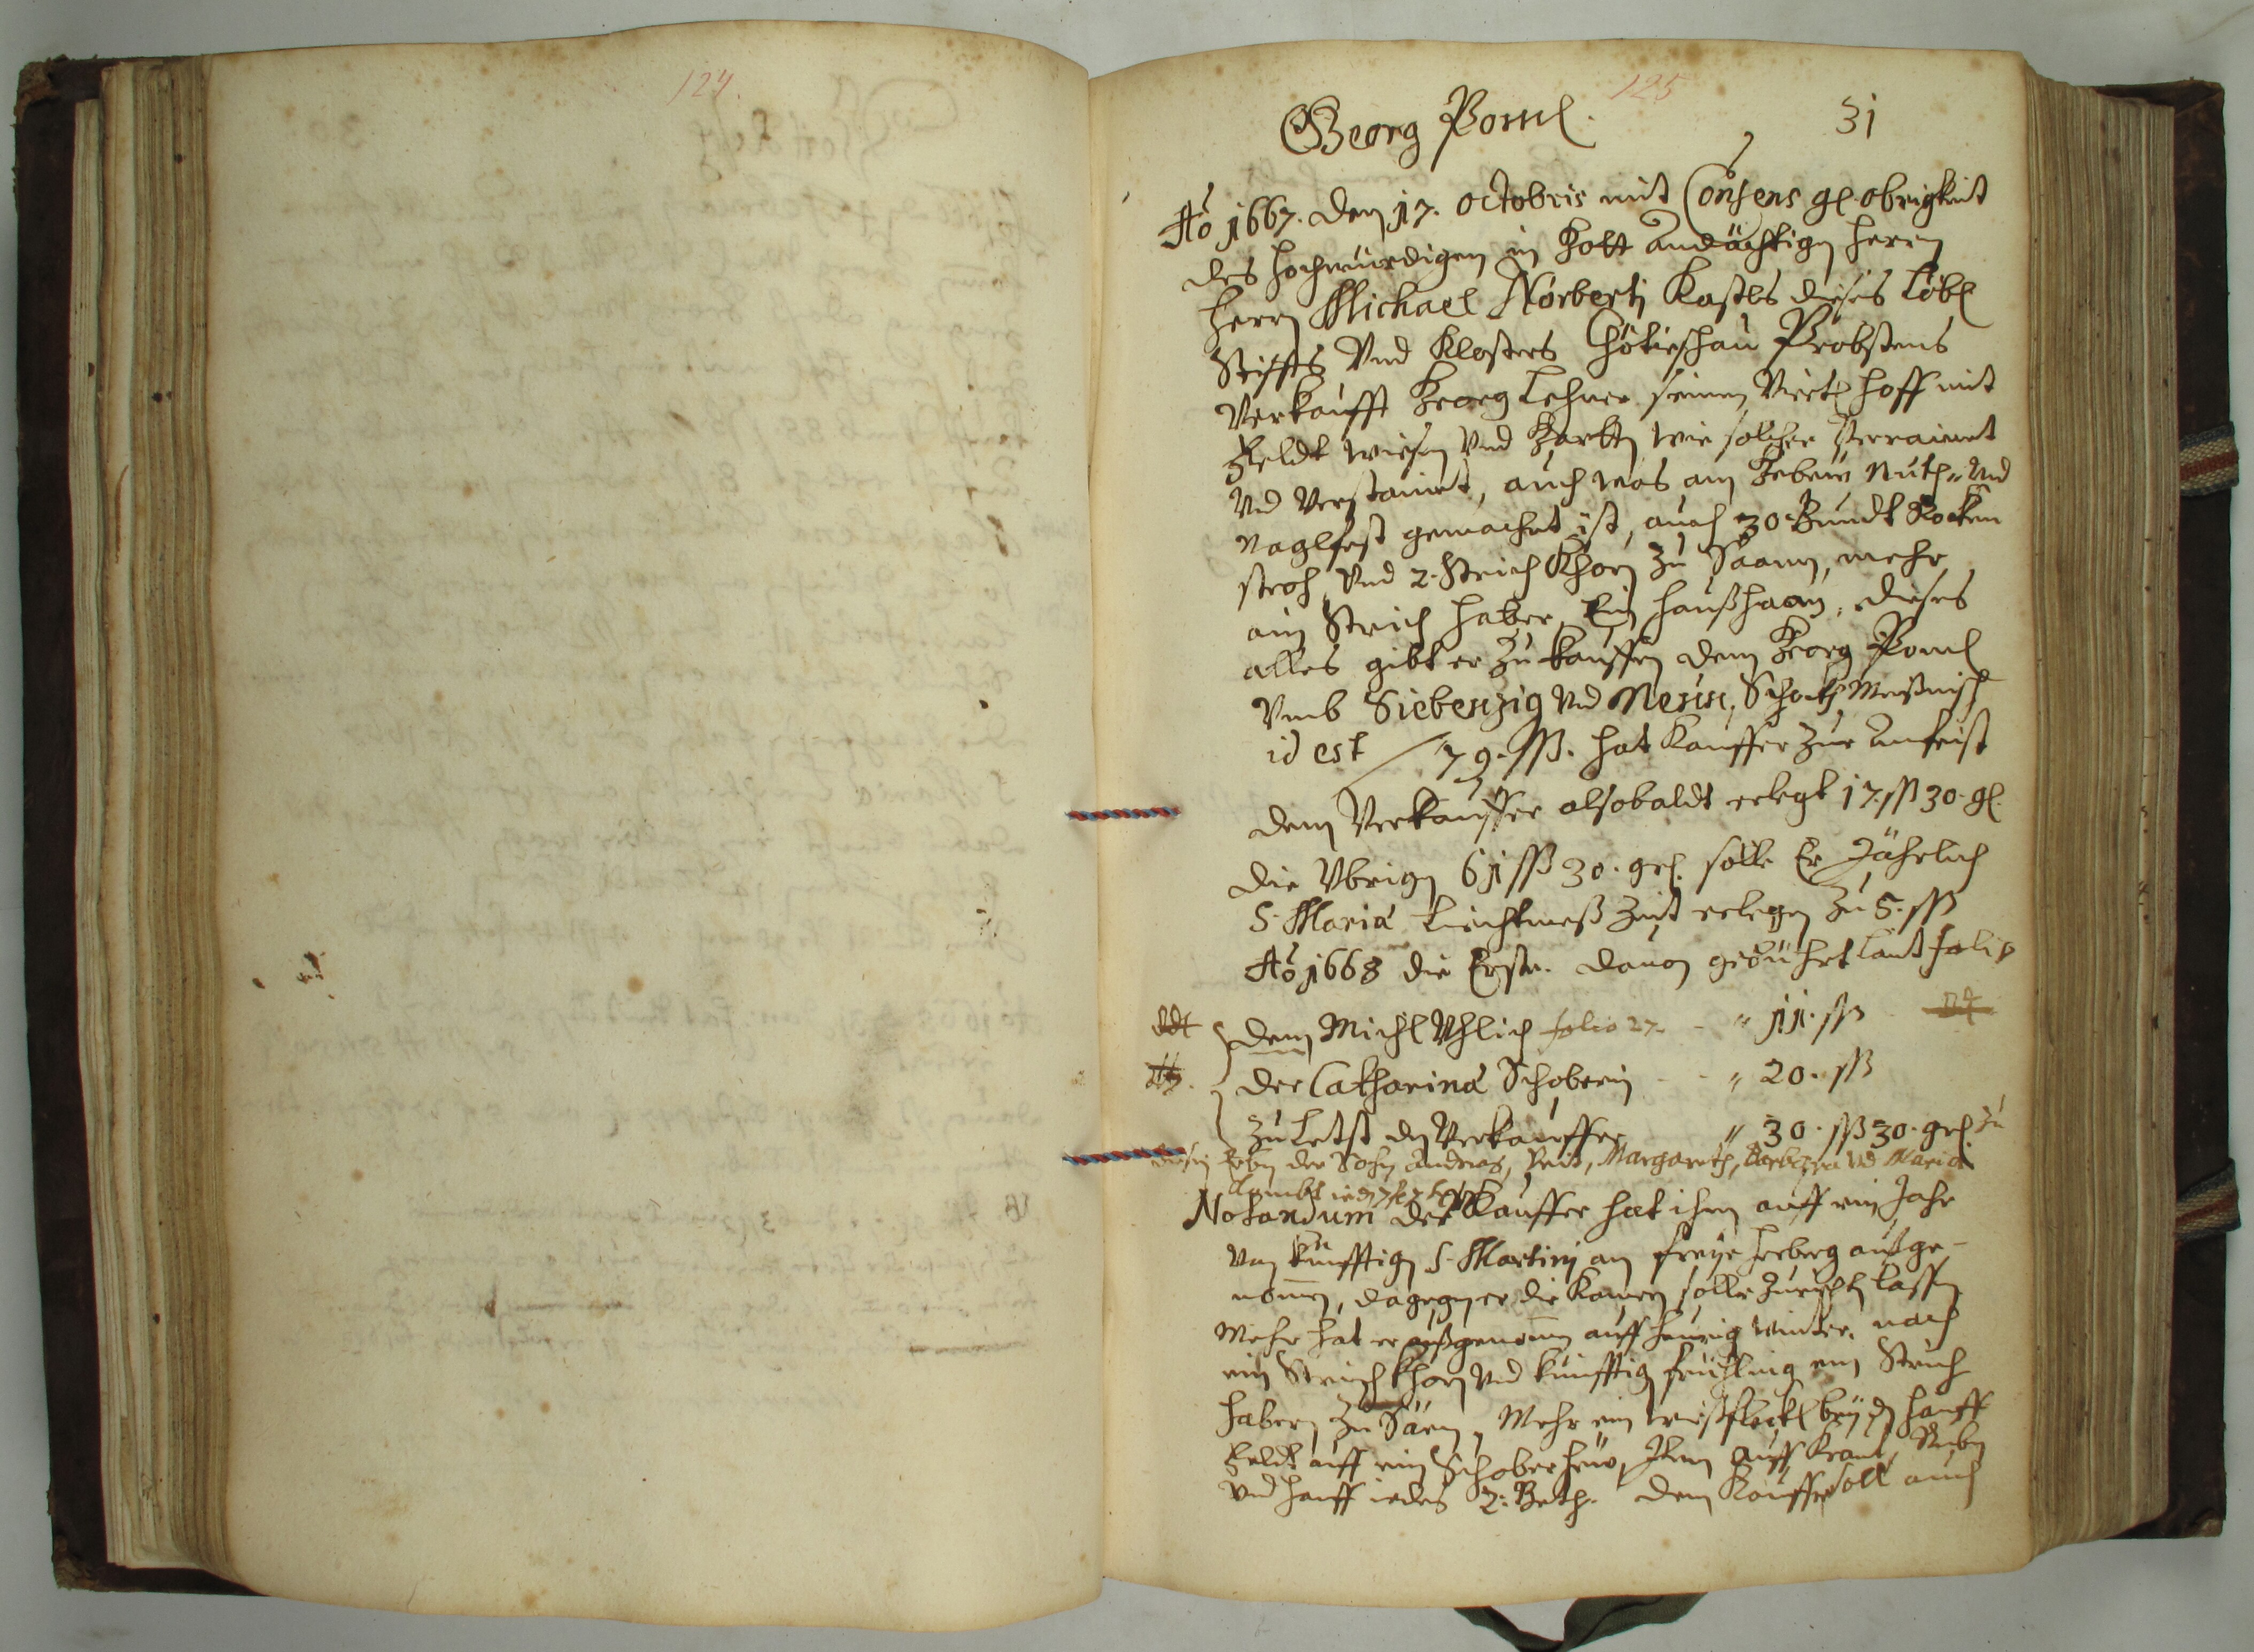 124
125
Georg Poml.
31
Aõ 1667. den 17. octobris mit Consens gl. obrigkeit
des hochwürdigen in Gott Andächtign herrn
herrn Michael Norberti Kastls dieses Löbl
Stiffts Vnd Klosters Chotieschau Probstens
Verkaufft Georg Lehner seinen Viertl hoff mit
Feldt wiesen Vnd Gartten wie solcher Verrainet
Vnd Verstainet, auch was am Gebew Nuth- Vnd
Naglfest gemachet ist, auch 30 Bundt Rocken
stroh, Vnd 2. Strich Khorn zu Saann, mehr
ain Strich haber, Ein haußhaan, dieses
alles gibt er zu kauffen dem Georg Poml
Vmb Siebenzig Vnd Neun, Schockh Meißnisch
id est 79. ßß. hat Kauffer zur Anfrist
dem Verkauffer alsobaldt erlegt 17. ßß 30. gl.
die Vbrign 61 ßß 30. grl. solle Er Jährlich
S. Maria Liechtmeß Zeit erlegen zu 5. ßß
Aõ 1668 die Erste. dauon gebührt laut folio
ddt dem Michl Vhlich folio 27. - " 11. ßß
der Catharina Schoberin - - " 20. ßß
Zu Letzt dem Verkauffer " 30. ßß 30. grl. zu
Erben der Sohn Andreas, Veit, Margareth, Barbara Vnd Maria
Notandum der Kauffer hat ihm auff ein Jahr
Von künfftign S. Martini an freye herberg außge-
nomen, dagegen er die Kamern solle zurichten lassen
Mehr hat er außgenomen auff heurig winter. nach
ein Strich Khorn Vnd künfftig früehling ein Strich
habern zu Säen, Mehr ein wießfleckl bey dem hanff
Feldt auff ein Schober heüw, Item auff Kraut, Rubn
vnd hanff iedes 2. Beth. dem Kauffer soll auch